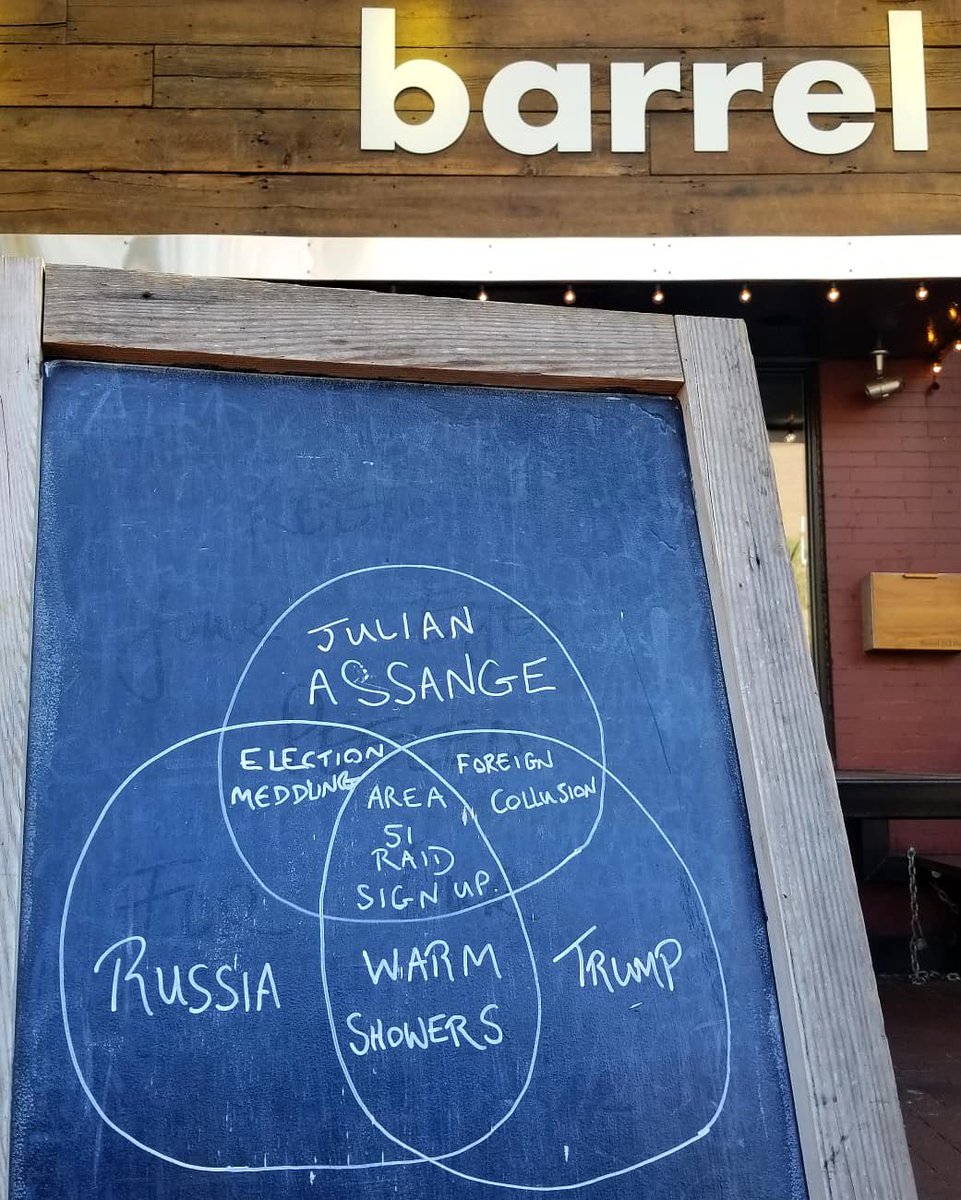 barrel
JULIAN
ASSANGE
ELECTION
MEDDLING
FOREIGN
COLLUSION
AREA
51
RAID
SIGN UP.
RUSSIA
WARM
SHOWERS
TRUMP